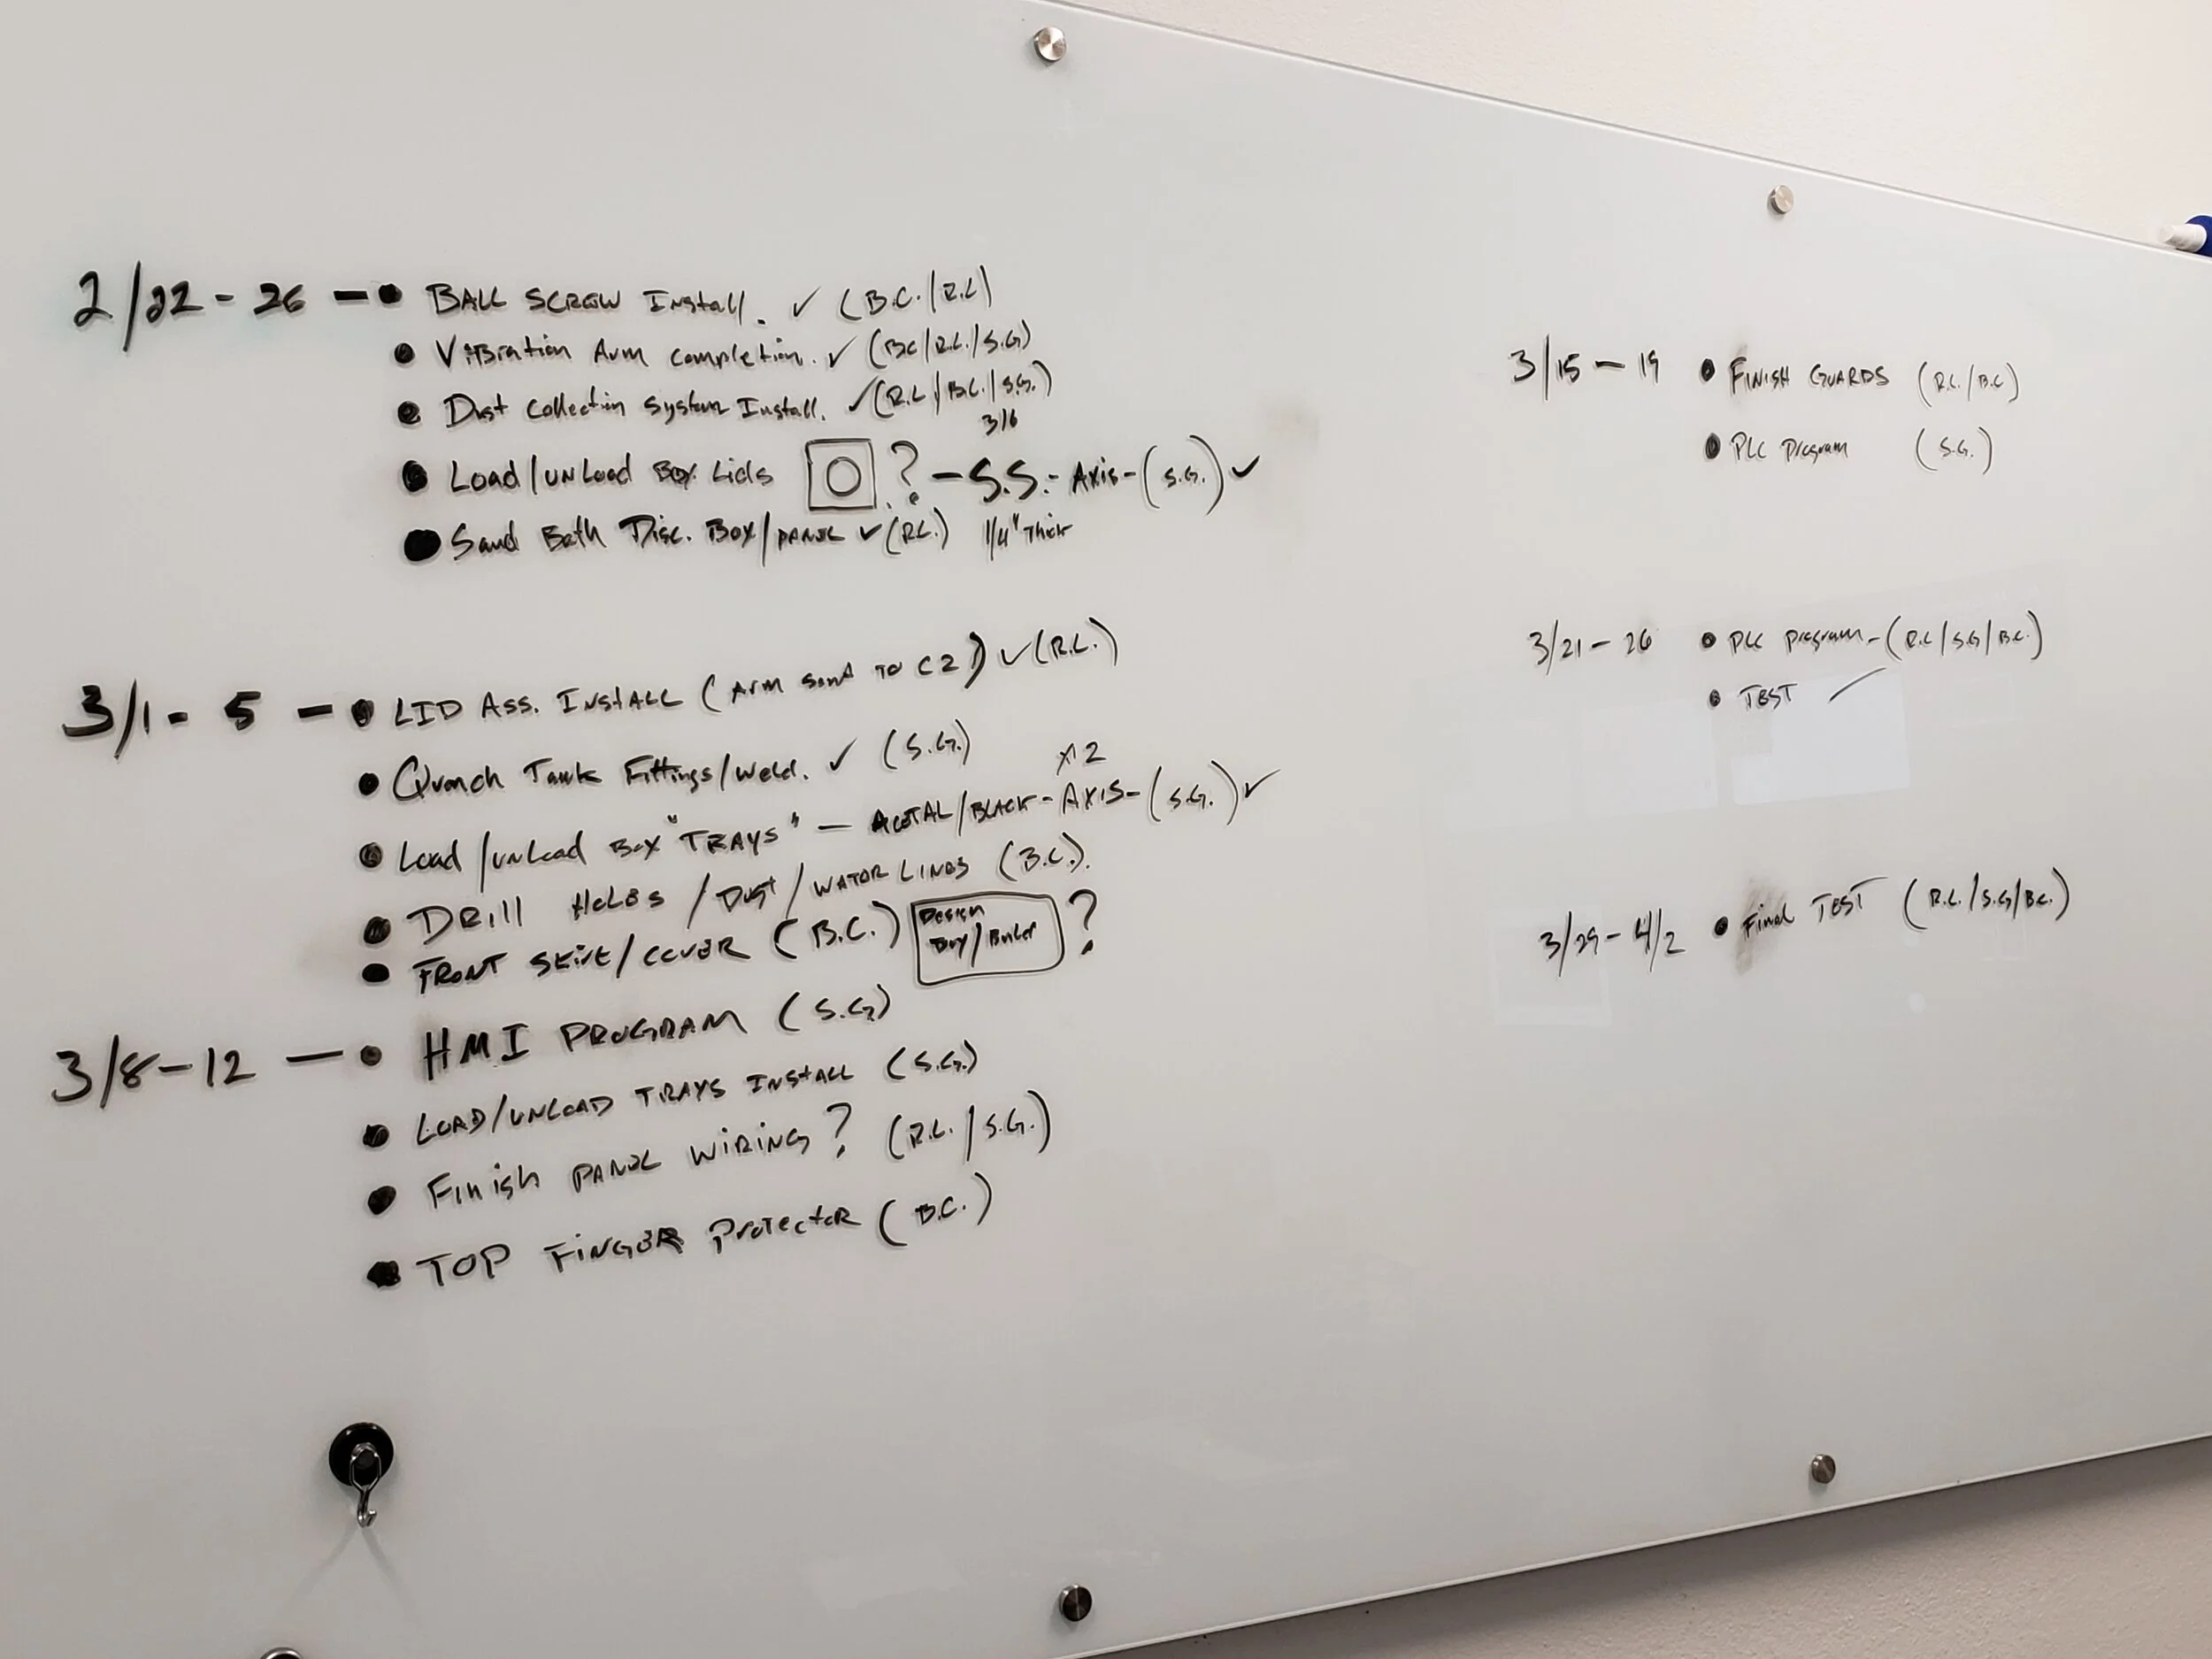 2/22 - 26 — • BALL SCREW Install. ✓ (B.C./R.L)
• Vibration Arm completion. ✓ (BC/R.L./S.G)
• Dust Collection System Install. ✓ (R.L/B.C./S.G.)
3/6
• Load/unLoad Box Lids ? - S.S. - Axis - (S.G.) ✓
• Sand Bath Disc. Box/PANEL ✓ (R.L.) 1/4" Thick
3/1 - 5 — • LID ASS. INSTALL (Arm TO C2) ✓ (R.L.)
• Quench Tank Fittings/weld. ✓ (S.G.)
x12
• Load/unLoad Box "TRAYS" — ACETAL/BLACK - AXIS - (S.G.) ✓
• DRill HoLES / DUST / WATER LINES (B.C.).
• FRONT SKIRT/COVER (B.C.) Design Buy/Build ?
3/8 - 12 — • HMI PROGRAM (S.G)
• LOAD/UNLOAD TRAYS INSTALL (S.G.)
• Finish PANEL WIRING ? (R.L./S.G.)
• TOP FINGER ProTecToR (B.C.)
3/15 - 19 • FINISH GUARDS (R.L./B.C)
• PLC Program (S.G.)
3/21 - 26 • PLC Program - (R.L/S.G/B.C.)
• TEST
3/29 - 4/2 • Final TEST (R.L./S.G/B.C.)